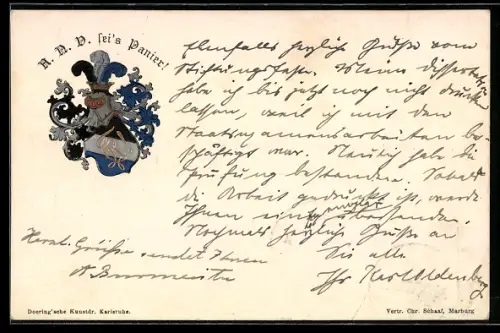 R. N. V. sei's Panier!
Ebenfalls herzliche Grüße vom
Stiftungsfeste. Meine Dissertation
habe ich bis jetzt noch nicht drucken
lassen, weil ich mit den
Staatsexamensarbeiten be-
schäftigt war. Heutig habe die
Prüfung bestanden. Sobald
die Arbeit gedruckt ist, werde
Ihnen eins übersenden.
Nochmals herzliche Grüße an
Sie alle
Ihr Karl Oldenberg
Herzl. Grüße sendet Ihnen
A Burmeister
Doering'sche Kunstdr. Karlsruhe.
Vertr. Chr. Schaaf, Marburg